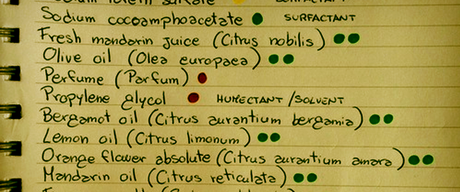 Sodium cocoamphoacetate SURFACTANT
Fresh mandarin juice (Citrus nobilis)
Olive oil (Olea europaea)
Perfume (Parfum)
Propylene glycol HUMECTANT/SOLVENT
Bergamot oil (Citrus aurantium bergamia)
Lemon oil (Citrus limonum)
Orange flower absolute (Citrus aurantium amara)
Mandarin oil (Citrus reticulata)